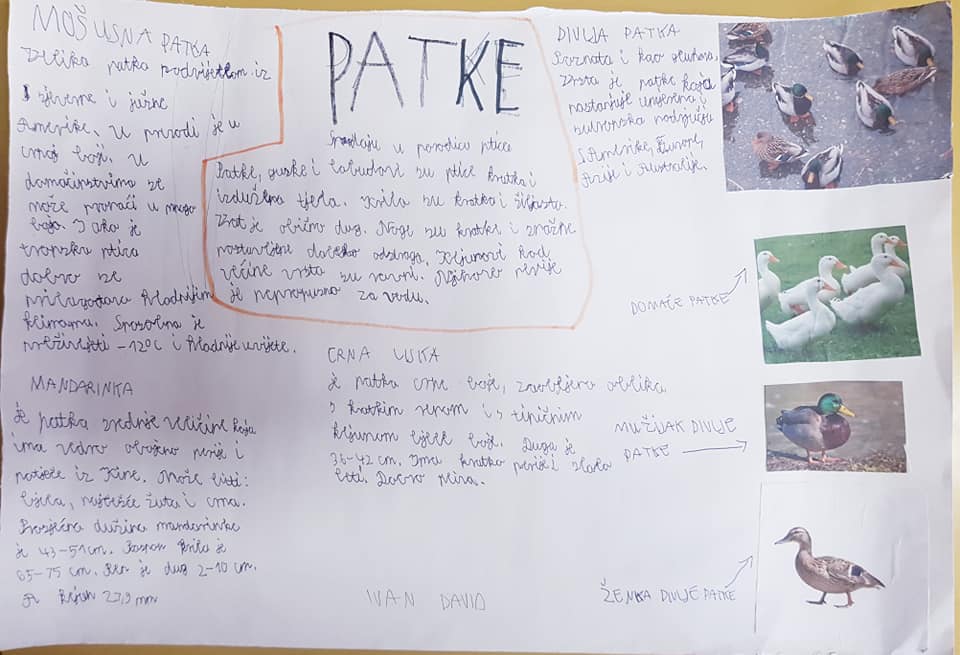 PATKE
Spadaju u porodicu ptica
Patke, guske i labudovi su ptice kratka i
izdužena tjela. Krila su kratka i šiljasta.
Vrat je obično dug. Noge su kratke i snažne
nastavljene daleko odzinga. Kljunovi kod
većine vrsta su ravni. Njihovo perije
je nepropusno za vodu.
MOŠUSNA PATKA
Velika patka podrijetlom iz
sjeverne i južne
Amerike. U prirodi je u
crnoj boji. U
domaćinstvima se
može pronaći u mnogo
boja. Iako je
tropska ptica
dobro se
prilagođava hladnijim
klimama. Sposobna je
preživjeti -12°C i hladnije uvijete.
MANDARINKA
je patka srednje veličine koja
ima vedro obojeno perije i
potječe iz Kine. Može biti:
bijela, najčešće žuta i crna.
Prosječna dužina mandarinke
je 43-51 cm. Raspon krila je
65-75 cm. Rep je dug 2-10 cm.
A kljun 27,9 mm
CRNA LISKA
je patka crne boje, zaobljena oblika
s kratkim repom i s tipičnim
kljunom bijele boje. Duga je
36-42 cm. Ima kratko perije i slabo
leti. Dobro pliva.
DIVLJA PATKA
Poznata i kao gluhara,
vrsta je patke koja
nastanjuje umjerena i
suptropska područja
S Amerike, Europe,
Azije i Australije.
DOMAĆE PATKE
MUŽIJAK DIVLJE
PATKE
ŽENKA DIVLJE PATKE
IVAN DAVID